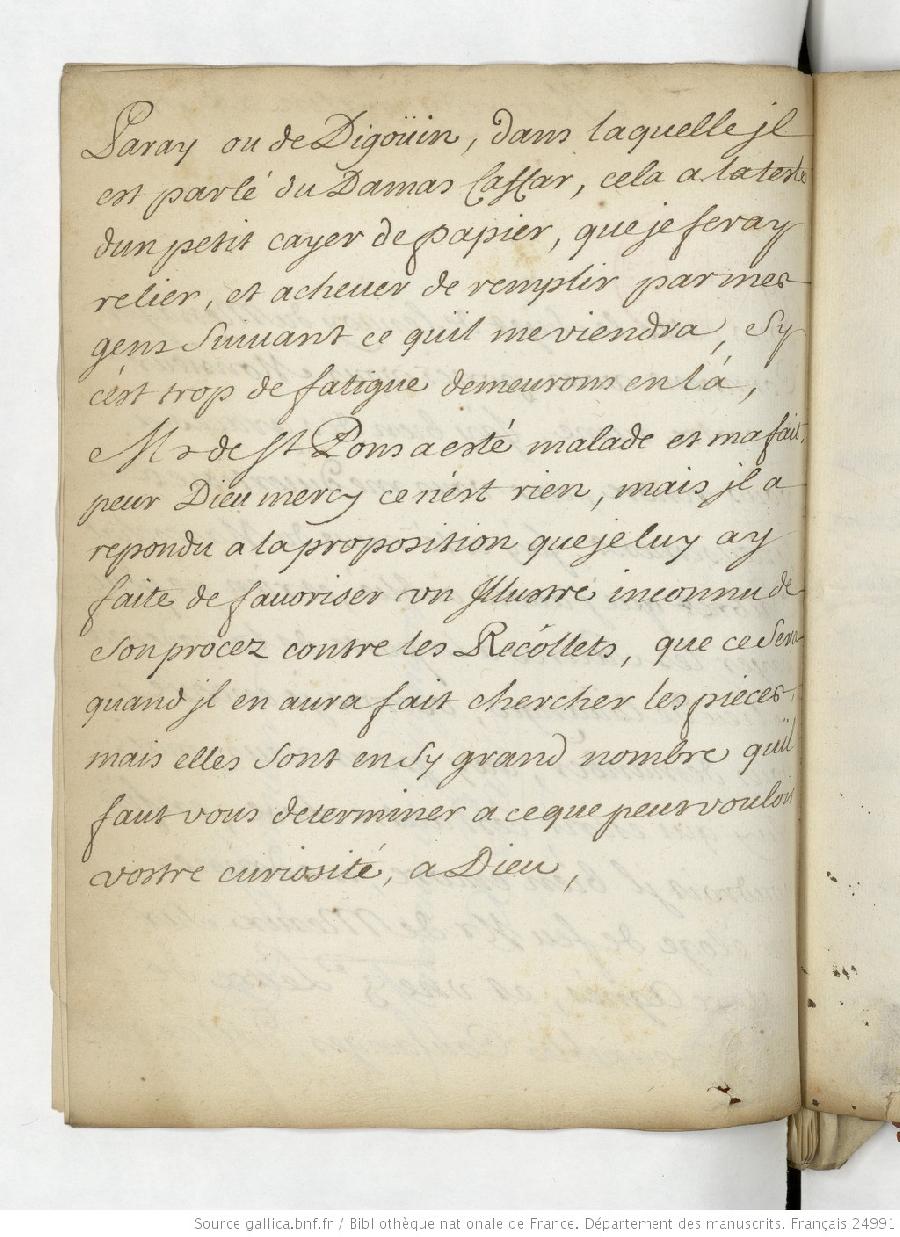 Paray ou de Digoüin, dans laquelle jl
est parlé du Damas Caffar, cela a la teste
dun petit cayer de papier, que je feray
relier, et acheuer de remplir par mes
gens Suiuant ce quil me viendra, Sy
cést trop de fatigue demeurons en là,
Mr de St Pons a esté malade et ma fait
peur Dieu mercy ce nést rien, mais jl a
repondu a la proposition que je luy ay
faite de fauoriser vn Jllustre inconnu de
Son procez contre les Recóllets, que ce Sera
quand jl en aura fait chercher les piéces,
mais elles Sont en Sy grand nombre quil
faut vous determiner a ce que peut vouloir
vostre curiosité, a Dieu,
Source gallica.bnf.fr / Bibliothèque nationale de France. Département des manuscrits. Français 24991